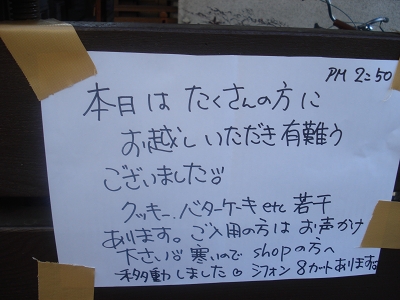 PM 2:50
本日は たくさんの方に
お越しいただき有難う
ございました
クッキー、バターケーキetc 若干
あります。ご入用の方は お声かけ
下さい 寒いので shopの方へ
移動しました シフォン 8カットあります。